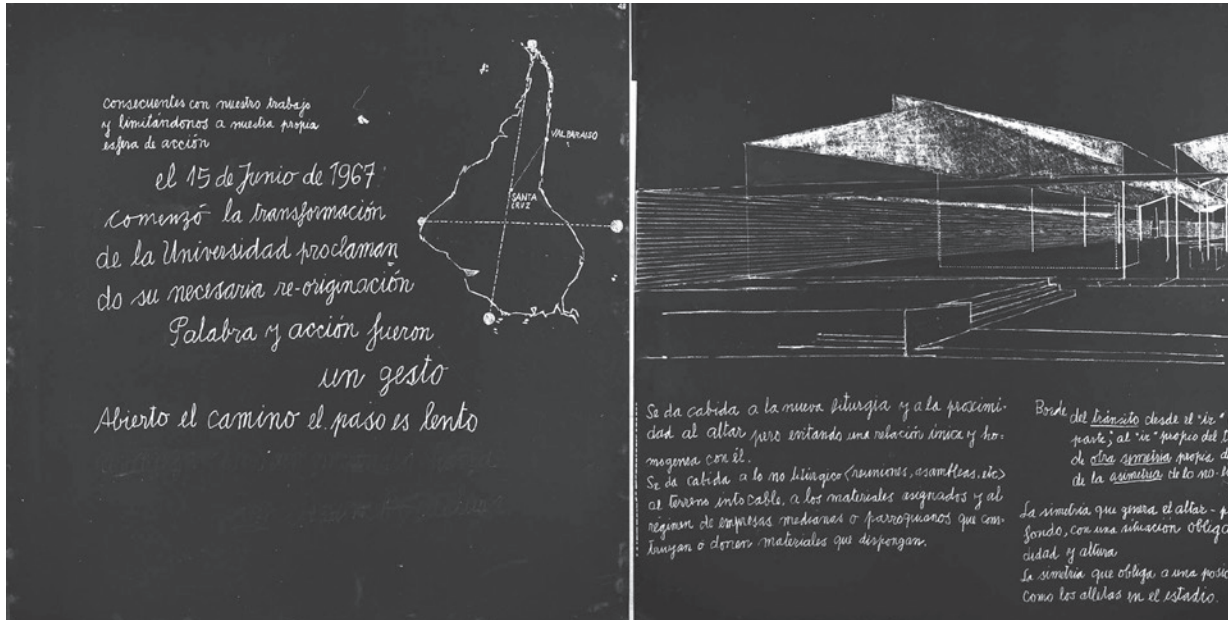 consecuentes con nuestro trabajo
y limitándonos a nuestra propia
esfera de acción
el 15 de Junio de 1967
comenzó la transformación
de la Universidad proclaman
do su necesaria re-originación
Palabra y acción fueron
un gesto
Abierto el camino el paso es lento
VALPARAISO
SANTA
CRUZ
Se da cabida a la nueva liturgia y a la proximi-
dad al altar pero evitando una relación única y ho-
mogenea con él.
Se da cabida a lo no litúrgico (reuniones, asambleas, etc)
al terreno intocable, a los materiales asignados y al
régimen de empresas medianas o parroquianos que cons-
truyan o donen materiales que dispongan.
Borde del tránsito desde el "ir"
parte; al "ir" propio del
de otra simetría propia
de la asimetría de lo no-
La simetría que genera el altar -
fondo, con una situación
didad y altura
La simetría que obliga a una
como los atletas en el estadio.